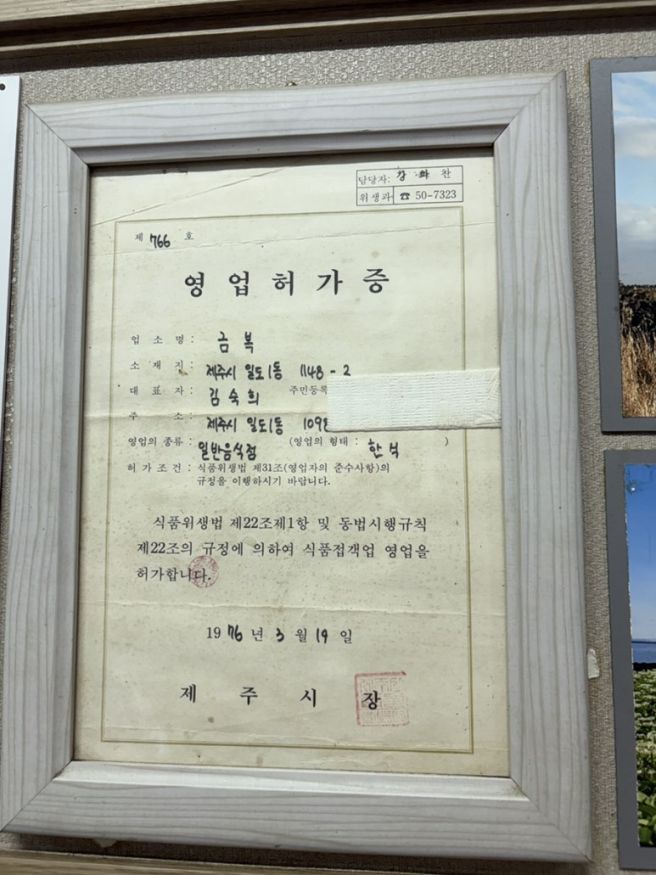 담당자: 강 화 찬
위생과 ☎ 50-7323
제 766 호
영 업 허 가 증
업 소 명 : 금 복
소 재 지 : 제주시 일도1동 1148 - 2
대 표 자 : 김 숙 희 주민등록
주 소 : 제주시 일도1동 109
영업의 종류 : 일반음식점 (영업의 형태 : 한 식 )
허 가 조 건 : 식품위생법 제31조(영업자의 준수사항)의
규정을 이행하시기 바랍니다.
식품위생법 제22조제1항 및 동법시행규칙
제22조의 규정에 의하여 식품접객업 영업을
허가합니다.
1976 년 3 월 19 일
제 주 시 장